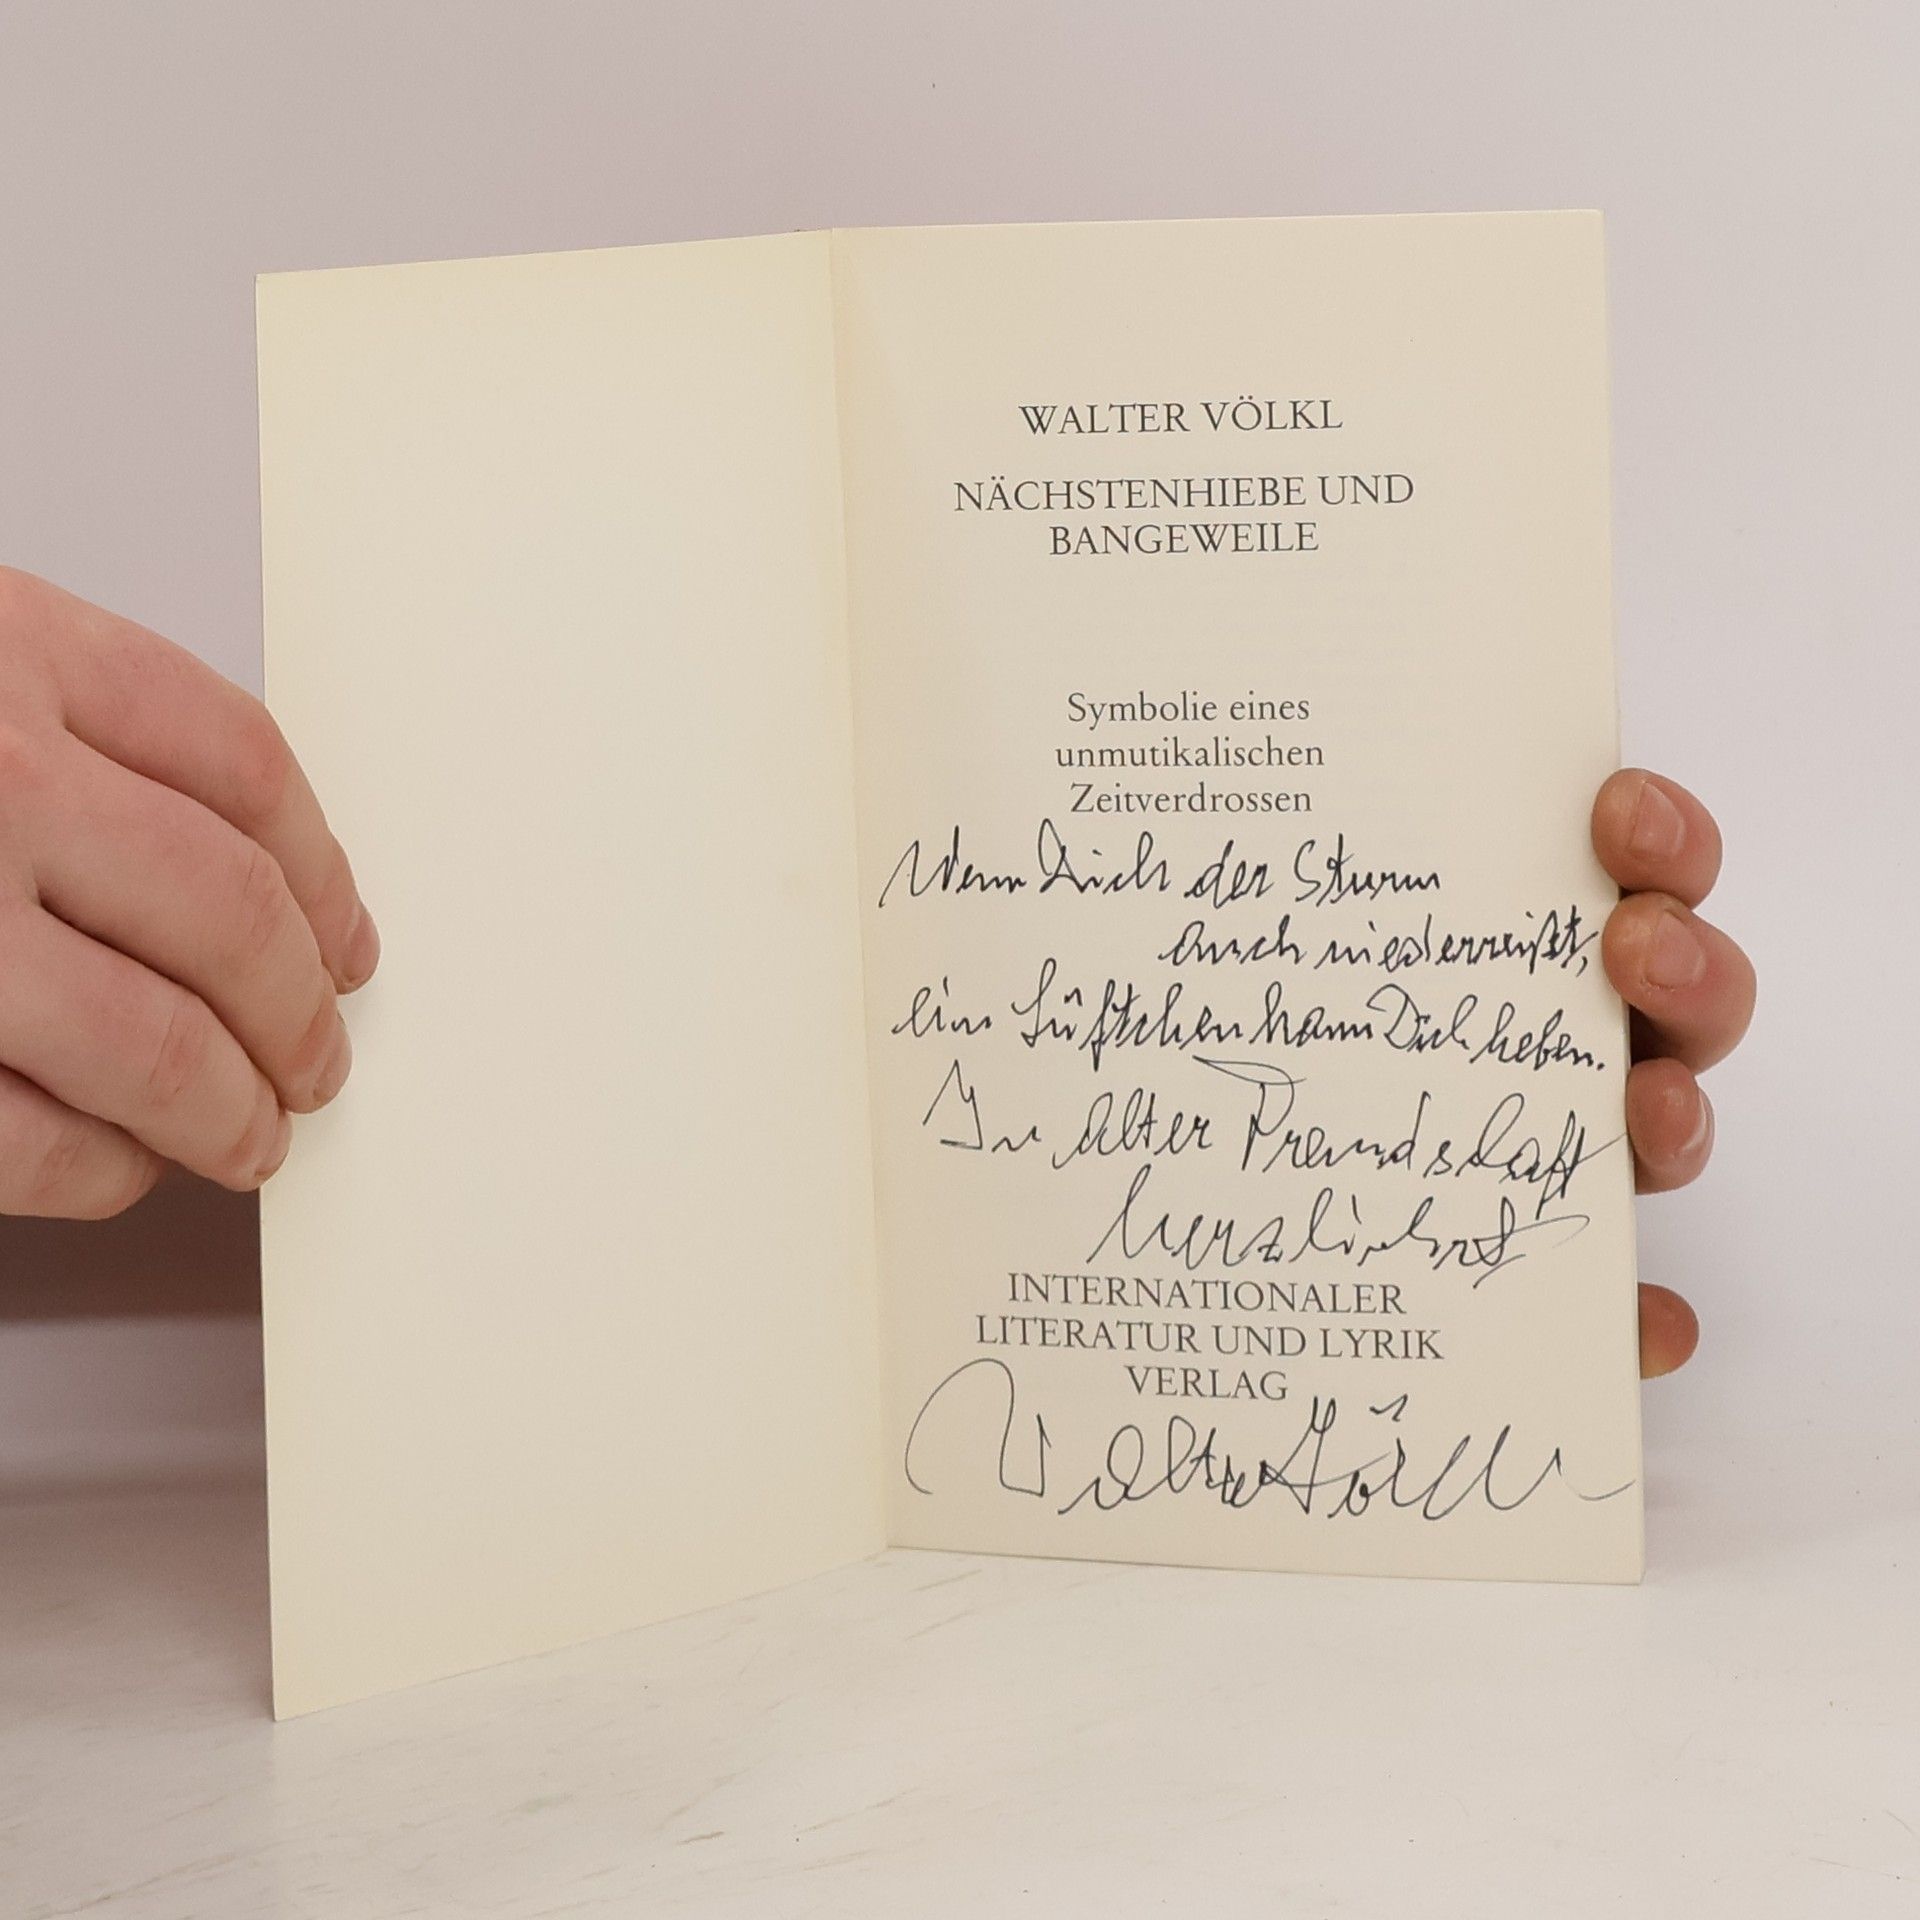 WALTER VÖLKL
NÄCHSTENHIEBE UND
BANGEWEILE
Symbolie eines
unmutikalischen
Zeitverdrossen
Wenn Dich der Sturm
auch niederreißt,
ein Lüftchen kann Dich heben.
In alter Freundschaft
herzlichst
INTERNATIONALER
LITERATUR UND LYRIK
VERLAG
Walter Völkl